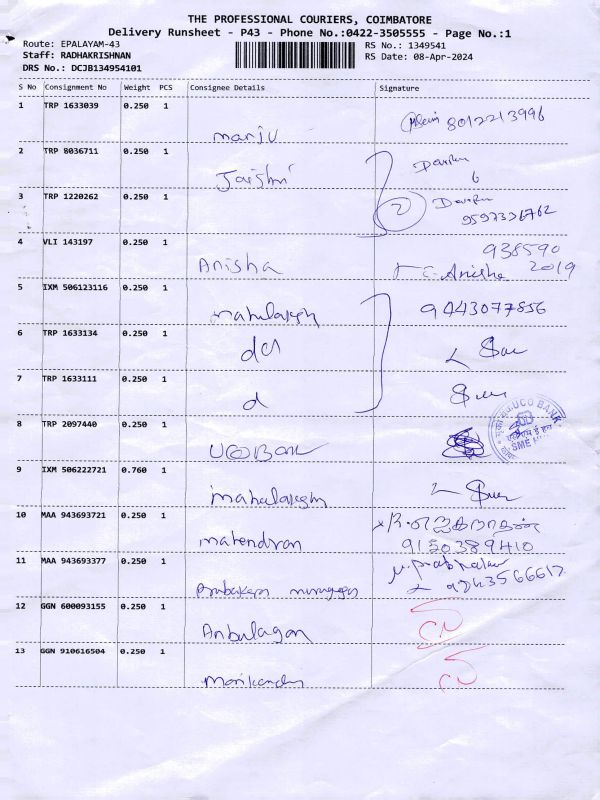 THE PROFESSIONAL COURIERS, COIMBATORE
Delivery Runsheet - P43 - Phone No.:0422-3505555 - Page No.:1
Route: EPALAYAM-43 RS No.: 1349541
Staff: RADHAKRISHNAN RS Date: 08-Apr-2024
DRS No.: DCJB134954101
S No Consignment No Weight PCS Consignee Details Signature
1 TRP 1633039 0.250 1
manju 8012213996
2 TRP 8036711 0.250 1
Jaishri
3 TRP 1220262 0.250 1
2
4 VLI 143197 0.250 1
Anisha 938590
Anisha 2019
5 IXM 506123116 0.250 1
9443077856
6 TRP 1633134 0.250 1
7 TRP 1633111 0.250 1
d
8 TRP 2097440 0.250 1
UCO Bank UCO BANK
SME
9 IXM 506222721 0.760 1
10 MAA 943693721 0.250 1
mahendran 9150389410
11 MAA 943693377 0.250 1
12 GGN 600093155 0.250 1
Anbulagan
13 GGN 910616504 0.250 1